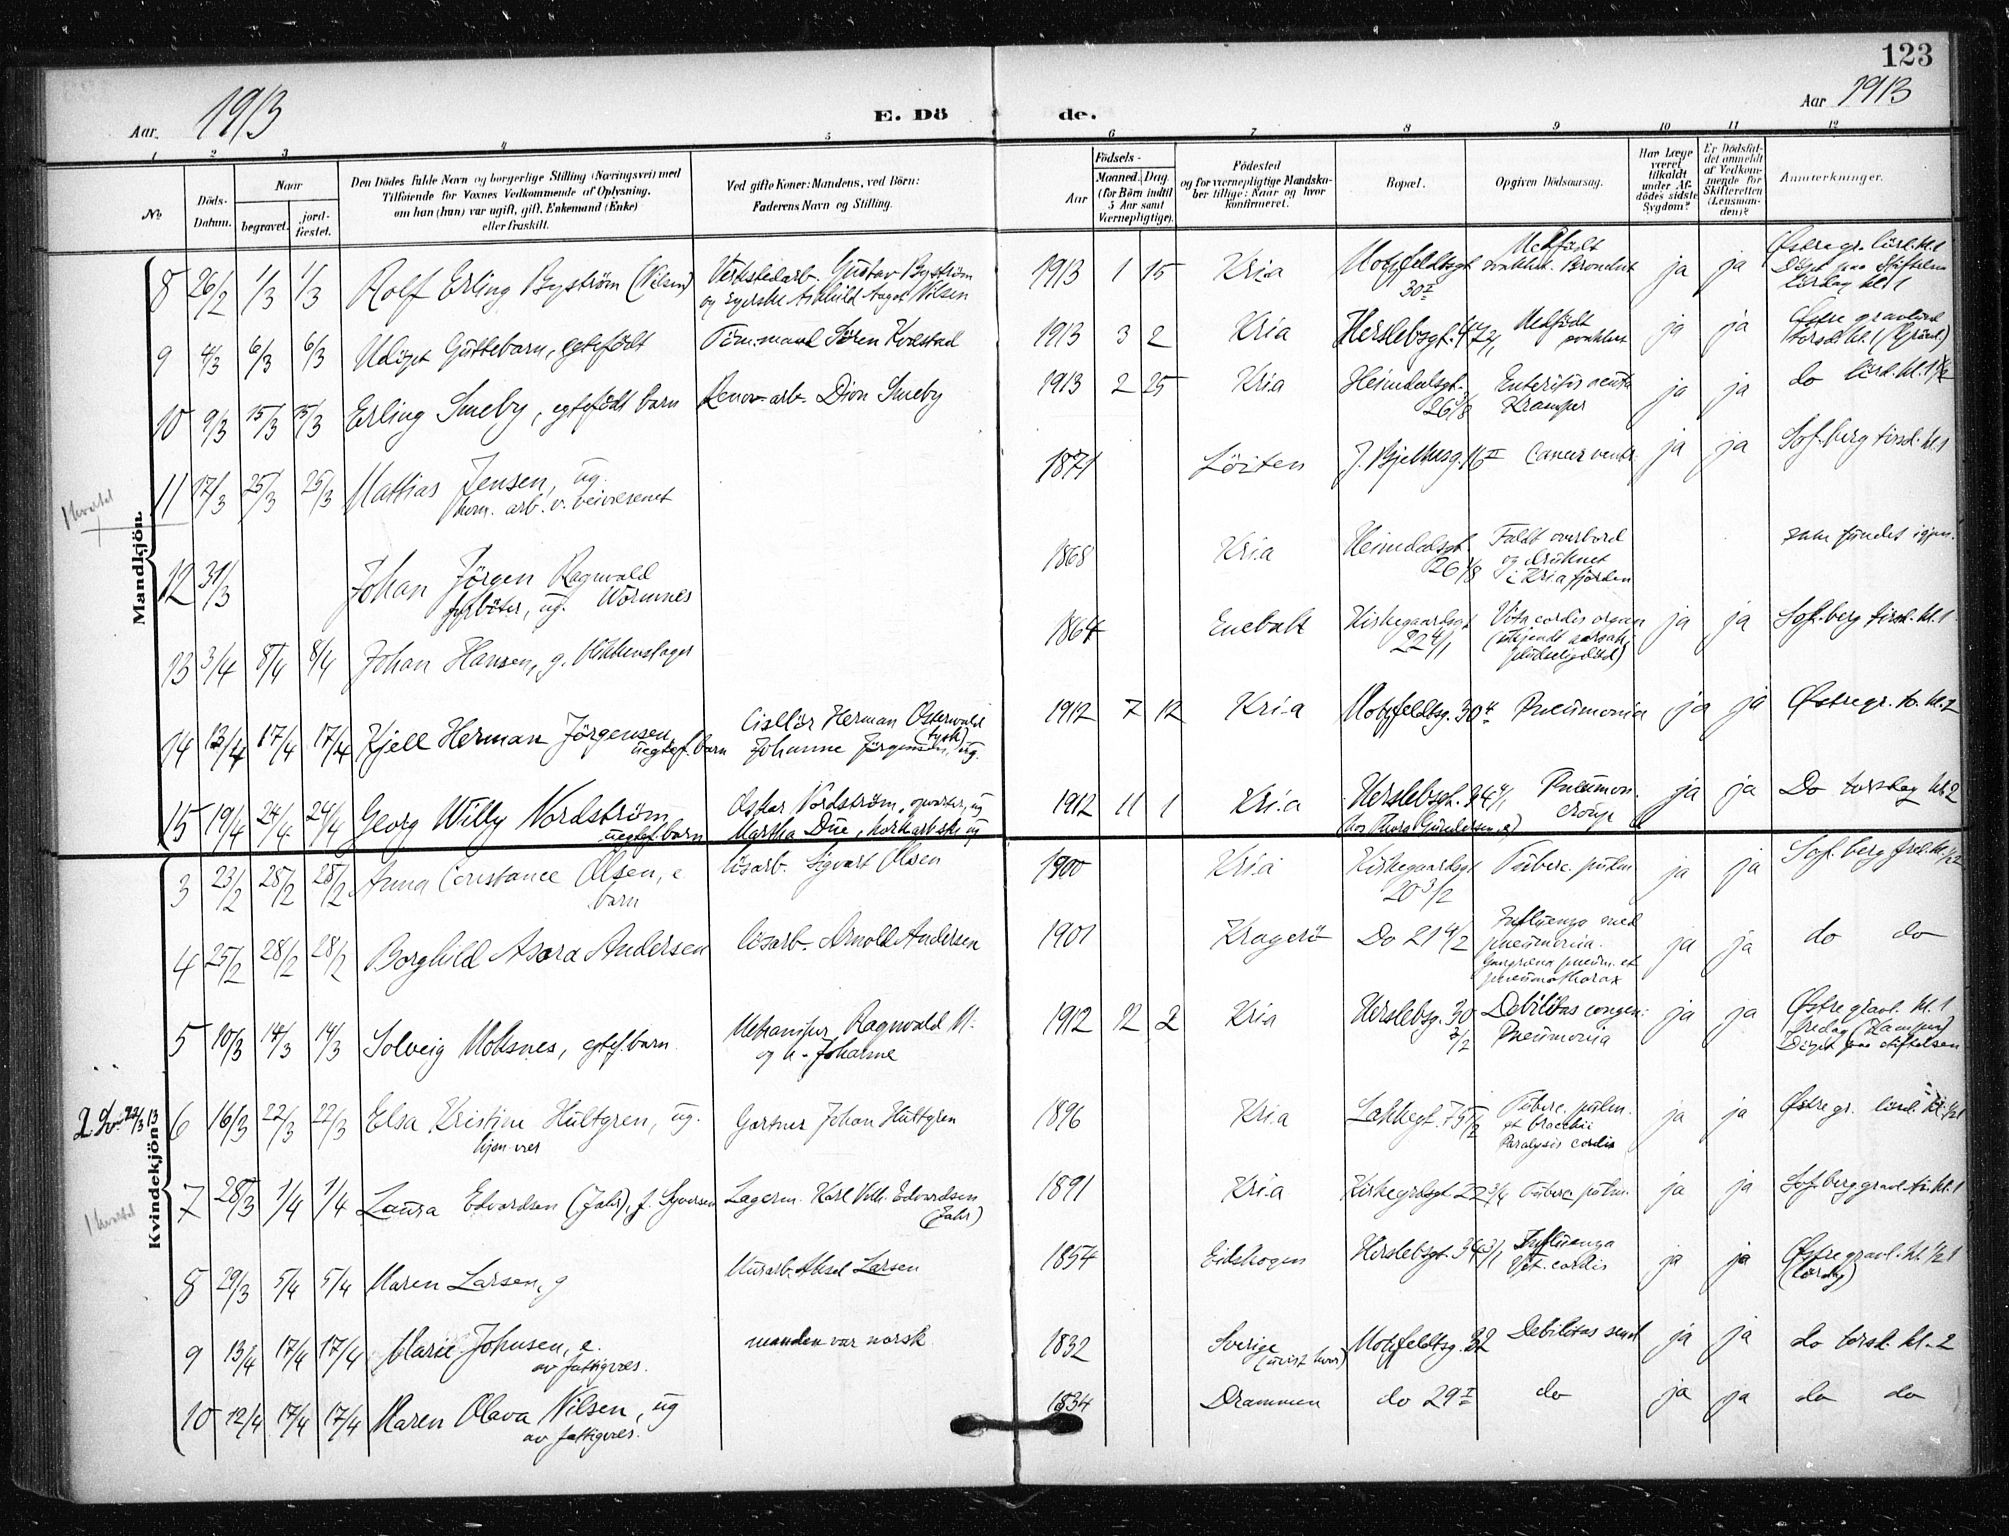 123
Aar 1913
E. Döde.
Aar 1913
1 2 3 4 5 6 7 8 9 10 11 12
No
Döds-Datum.
Naar begravet. jordfæstet.
Den Dödes fulde Navn og borgerlige Stilling (Næringsvei) med
Tilföiende for Voxnes Vedkommende af Oplysning,
om han (hun) var ugift, gift, Enkemand (Enke)
eller fraskilt.
Ved gifte Koner: Mandens, ved Börn:
Faderens Navn og Stilling.
Födsels-
Aar
Maaned. Dag
(for Börn indtil
5 Aar samt
Værnepligtige).
Födested
og for værnepligtige Mandska-
ber tillige: Naar og hvor
konfirmeret.
Bopæl.
Opgiven Dödsaarsag.
Har Læge
været
tilkaldt
under Af-
dödes sidste
Sygdom?
Er Dödsfal-
det anmeldt
af Vedkom-
mende for
Skifteretten
(Lensman-
den)?
Anmærkninger.
Mandkjön.
8 26/2 1/3 1/3 Rolf Erling Byström (Nilsen) Verkstedarb. Gustav Byström 1913 1 15 Kria Motzfeldtsgt. 30 I Medfödt ja ja Östre gr. lörd. kl. 1
9 4/3 6/3 6/3 Udöpt Guttebarn, egtefödt Töm.mand Sören Kvalstad 1913 3 2 Kria Herslebsgt. Medfödt ja ja Östre gravlund
10 9/3 15/3 15/3 Erling Smeby, egtefödt barn Renov. arb. Dion Smeby 1913 2 25 Kria Heimdalsgt. Enteritis acuta Kramper ja ja do lörd. kl. 1 1/2
11 17/3 25/3 25/3 Mattias Jensen, ug. kom. arb. v. veivæsenet 1871 Löiten J. Bjelkesg. 16 II Cancer ventr. ja ja Sof.berg tirsd. kl. 1
12 31/3 Johan Jörgen Ragnvald Wormnes fyrböter, ug. 1868 Kria Heimdalsgt. Faldt overbord og druknet i Kriafjorden
13 3/4 8/4 8/4 Johan Hansen, g. 1864 Enebak Kirkegaardsgt 22 4/1 ja ja Sof.berg tirsd. kl. 1
14 13/4 17/4 17/4 Kjell Herman Jörgensen uegtef. barn Cisellör Herman Osterwald (tysk) Johanne Jörgensen, ug. 1912 7 12 Kria Motzfeldtsg. 30 Pneumonia ja ja Östre gr. to. kl. 2
15 19/4 24/4 24/4 Georg Willy Nordström uegtef. barn Oskar Nordström, ug Martha Due, ug 1912 11 1 Kria Herslebsgt. 34 4/1 Pneumon. croup. ja ja Do torsdag kl 2
Kvindekjön.
3 23/2 28/2 28/2 Anna Constance Olsen, e. barn lösarb. Sigvart Olsen 1900 Kria Kirkegaardsgt 20 3/2 Tuberc. pulm ja ja Sof. berg fred. kl. 1/2 2
4 25/2 28/2 28/2 Borghild Asora Andersen lösarb. Arnold Andersen 1901 Kragerö Do 21 4/2 Influenza med pneumonia. Gangræna pneum. et pneumothorax ja ja do do
5 10/3 14/3 14/3 Solveig Moksnes, egtef. barn. Mekaniker Ragnvald M. og h. Johanne 1912 12 2 Kria Herslebsg. 30 3/2 Debilitas congen: Pneumonia ja ja Östre gravl. kl. 1 fredag Döpt paa stiftelsen
6 16/3 22/3 22/3 Elsa Kristine Hultgren, ug. Gartner Johan Hultgren 1896 Kria Lakkegt. Tuberc. pulm. Paralysis cordis ja ja Östre gr. lörd. kl. 1/2 1
7 28/3 1/4 1/4 Laura Edvardsen (Jahr), f. Syversen Lagerm. Karl Vilh. Edvardsen (Jahr) 1891 Kria Kirkegrdsgt. 22 3/4 Tuberc. pulm. ja ja Sof.berg gravl. kl. 1
8 29/3 5/4 5/4 Maren Larsen, g Murarb. Aksel Larsen 1854 Eidskogen Herslebsgt. 34 3/1 Influenza Vit. cordis ja ja Östre gravl. kl. 1/2 1 (lördag)
9 13/4 17/4 17/4 Marie Johnsen, e. av fattigvæs. manden var norsk 1832 Sverige (uvist hvor) Motzfeldtsg. 32 Debilitas senil ja ja do torsd. kl. 2
10 12/4 17/4 17/4 Maren Olava Nilsen, ug av fattigvæs. 1834 Drammen do 29 I do ja ja do do